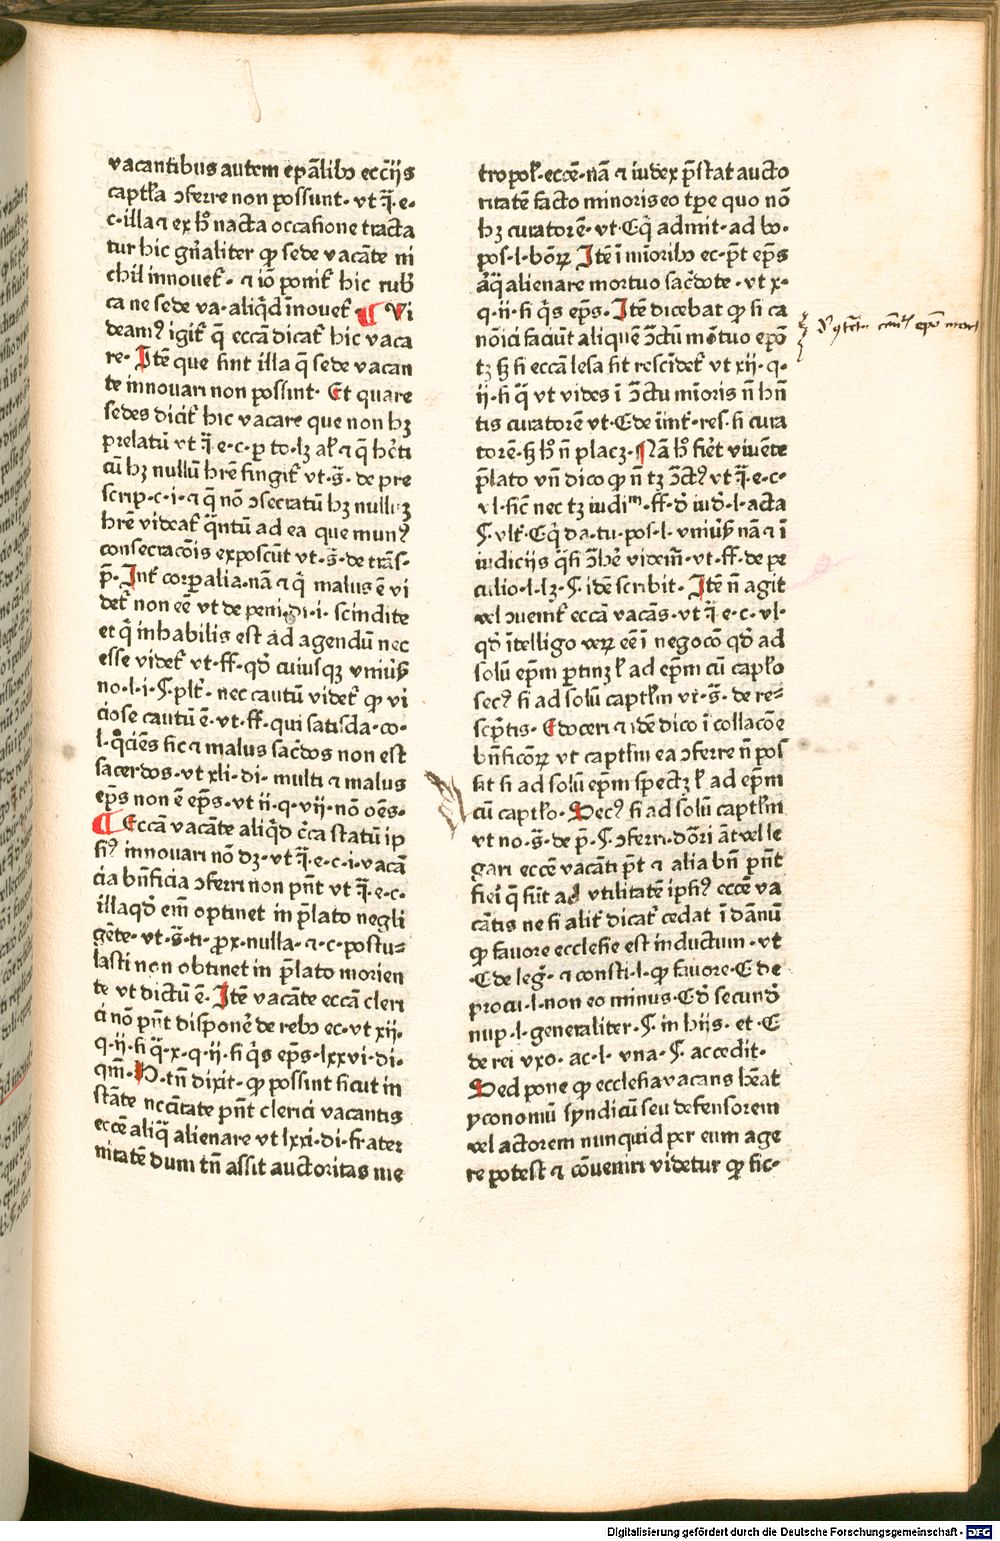 vacantibus autem epāliḃꝫ ecc̄ijs
captl̄a ꝯferre non possunt· vt q̄ī·e·
c·illa ⁊ ex hͦ nacta occasione tracta
tur hic gn̄aliter ꝙ sede vacāte ni
chil innouet᷑· ⁊ iō ponit᷑ hic rub᷑
ca ne sede va·aliq̇d īnouet᷑· ¶ Vi
deamꝰ igit᷑ q̄ eccā dicat᷑ hic vaca
re· Itē que sint illa q̄ sede vacan
te innouari non possint· Et quare
sedes dicit᷑ hic vacare que non hꝫ
prelatū vt q̄ī·e·c·ꝑ to·lꝫ al᷑ ⁊ q̄ hc̄ti
cū hꝫ nullū hr̄e fingit᷑ vt·s̄· de pre
scrip·c·i·⁊ q̄ nō ꝯsecratū hꝫ nullū ꝫ
hr̄e videat᷑ q̄ntū ad ea que munꝰ
consecracōis exposcūt vt·s̄·de trās·
p̄·Int᷑ corꝑalia·nā ⁊ q̇ malus ē vi
det᷑ non eē vt de peni·di·i· scindite
et q̇ inhabilis est ad agendū nec
esse videt᷑ vt·ff·qd̄ cuiusqꝫ vniuẜ
no·l·i·§·pl᷑t·nec cautū videt᷑ ꝙ vi
ciose cautū ē·vt·ff·qui satisda·co·
l·q̊ciēs sic ⁊ malus sac̄dos non est
sacerdos·vt xli·di·multi ⁊ malus
ep̄s non ē ep̄s·vt ij·q·vij·nō oēs·
¶ Eccā vacāte aliq̇d c̄ca statū ip
siꝰ innouari nō dꝫ·vt q̄ī·e·c·i·vacā
cia bn̄ficia ꝯferri non pn̄t vt q̄ī·e·c·
illaqd̄ em̄ optinet in p̄lato negli
gēte·vt·s̄·ti·prox·nulla·⁊·c·postu⸗
lasti non obtinet in p̄lato morien
te vt dictū ē·Itē vacāte eccā cleri
ci nō pn̄t disponē de reb̄ꝫ ec·vt xij·
q·ij·si q̄·x·q·ij·si q̇s ep̄s·lxxvi·di·
qm̄·P·tn̄ dixit·ꝙ possint sicut in
stāte nc̄citate pn̄t clerici vacantis
eccē aliq̄ alienare vt lxxi·di·frater
nitatē dum tn̄ assit auctoritas me
tropol᷑·eccē·nā ⁊ iudex p̄stat aucto
ritatē facto minoris eo tꝑe quo nō
hꝫ curatorē·vt·C·q̇ admit·ad bo·
pos·l·bōꝝ Itē ī mioriḃꝫ ec·p̄t ep̄s
āq̄ alienare mortuo sac̄dote·vt x·
q·ij·si q̇s ep̄s·Itē dicebat ꝙ si ca
nōici faciūt aliquē ꝯ̄ctū mōtuo epō
tꝫ sꝫ si eccā lesa sit rescīdet᷑ vt xij·q·
ij·si q̄ vt vides ī ꝯ̄ctu mioris n̄ hn̄
tis curatorē vt·C·de īint᷑·res·si cura
torē·sꝫ hͦ n̄ placꝫ·Nā hͦ fiet᷑ viuēte
p̄lato vn̄ dico ꝙ n̄ tꝫ ꝯ̄ctꝰ vt q̄ī·e·c·
vl·sic̄ nec tꝫ iudim·ff·d̄ iud̄·l·acta
§·vlt᷑·C·q̇ da·tu·pos·l·vniuẜ nā ⁊ ī
iudicijs q̄si ꝯ̄he᷑ videm̄·vt·ff·de pe
culio·l·lꝫ·§·idē scribit·Itē n̄ agit᷑
vel ꝯuenit᷑ eccā vacās·vt q̄ī·e·c·vl·
qd̄ ītelligo veꝝ eē ī negocō qd̄ ad
solū ep̄m ꝑtinꝫ l᷑ ad ep̄m cū capl᷑o
secꝰ si ad solū captl᷑m vt·s̄·de re⸗
sc̄ptis·Edoceri ⁊ idē dico ī collacōe
bn̄ficōꝝ vt captl᷑m ea ꝯferre n̄ pos
sit si ad solū ep̄m spectꝫ l᷑ ad ep̄m
cū captl᷑o·Secꝰ si ad solū captl᷑m
vt no·s̄·de p̄·§·ꝯferri·dōri āt vel le
gari eccē vacāti p̄t ⁊ alia bn̄ pn̄t
fieri q̄ sūt ad vtilitatē ipsiꝰ eccē va
cātis ne si alit᷑ dicat᷑ cedat ī dānū
ꝙ fauore ecclesie est inductum·vt
·C·de leg᷑·⁊ consti·l·ꝙ fauore·C·de
procu·l·non eo minus·C·d̄ secund̄
nup·l·generaliter·§·in hijs· et·C
de rei vxo·ac·l·vna·§·accedit·
Sed pone ꝙ ecclesia vacans hēat
yconomū syndicū seu defensorem
vel actorem nunquid per eum age
re potest ⁊ cōueniri videtur ꝙ sic·
Digitalisierung gefördert durch die Deutsche Forschungsgemeinschaft - DFG